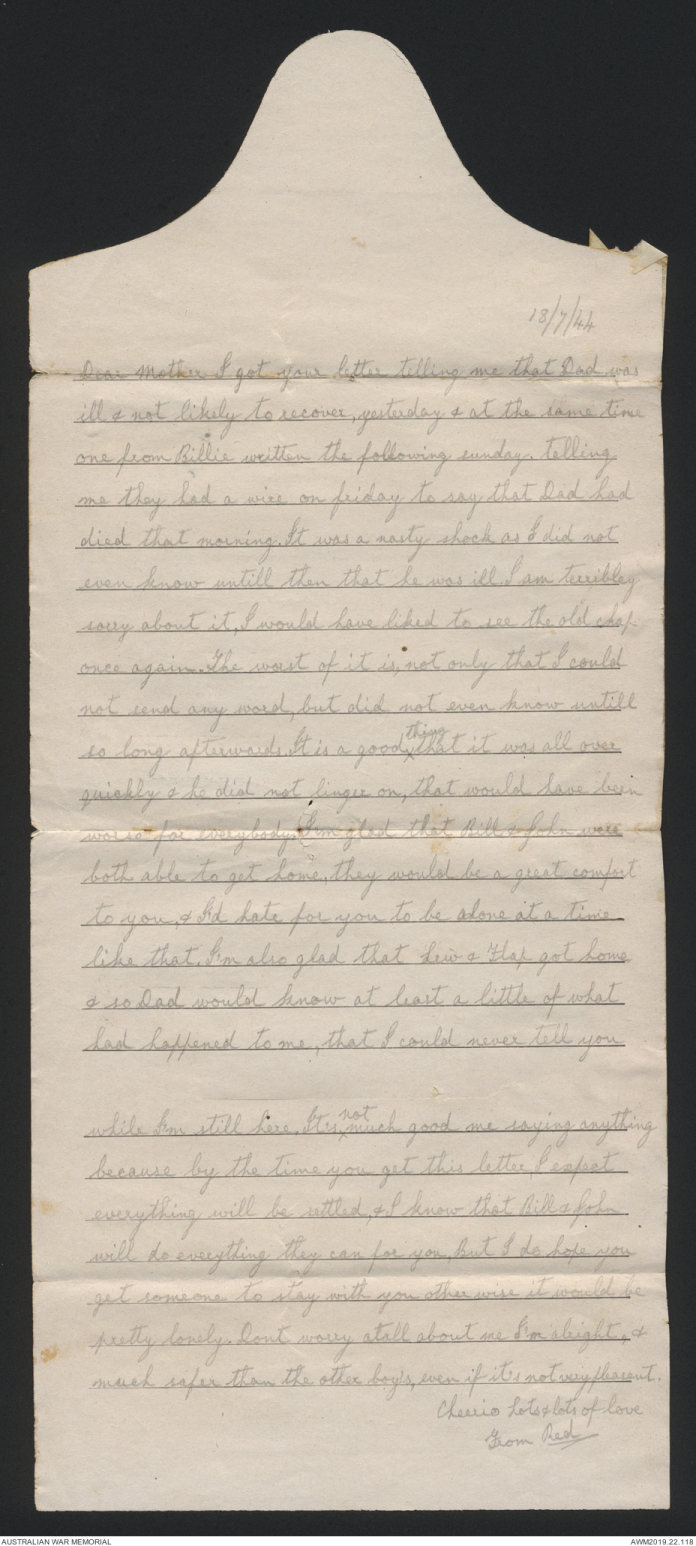 18/7/44
Dear Mother I got your letter telling me that Dad was
ill & not likely to recover, yesterday & at the same time
one from Billie written the following sunday. telling
me they had a wire on friday to say that Dad had
died that morning. It was a nasty shock as I did not
even know untill then that he was ill. I am terribley
sorry about it, I would have liked to see the old chap
once again. The worst of it is, not only that I could
not send any word, but did not even know untill
so long afterwards. It is a good thing that it was all over
quickly & he did not linger on, that would have been
worse for everybody. I'm glad that Bill & John were
both able to get home, they would be a great comfort
to you, & I'd hate for you to be alone at a time
like that. I'm also glad that Lew & Flap got home
& so Dad would know at least a little of what
had happened to me, that I could never tell you
while I'm still here. It's not much good me saying anything
because by the time you get this letter, I expect
everything will be settled, & I know that Bill & John
will do everything they can for you, But I do hope you
get someone to stay with you other wise it would be
pretty lonely. Dont worry atall about me I'm alright, &
much safer than the other boy's, even if it's not very plesent.
Cheerio Lots & lots of love
From Red
AUSTRALIAN WAR MEMORIAL
AWM2019.22.118